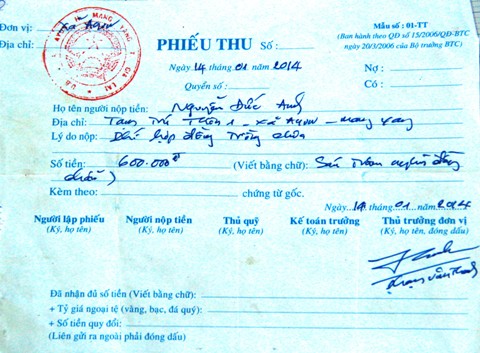 Đơn vị: Xã Ayun
Mẫu số : 01-TT
Địa chỉ:
(Ban hành theo QĐ số 15/2006/QĐ-BTC
ngày 20/3/2006 của Bộ trưởng BTC)
PHIẾU THU Số:
Ngày 14 tháng 01 năm 2014
Quyển số:
Nợ :
Có :
Họ tên người nộp tiền: Nguyễn Đức Anh
Địa chỉ: Tạm Trú Thôn 1 - xã Ayun - Mang Yang
Lý do nộp: hợp đồng trồng
Số tiền: 600.000đ (Viết bằng chữ): Sáu Trăm nghìn đồng
chẵn)
Kèm theo: chứng từ gốc.
Ngày 14 tháng 01 năm 2014
Người lập phiếu Người nộp tiền Thủ quỹ Kế toán trưởng Thủ trưởng đơn vị
(Ký, họ tên) (Ký, họ tên) (Ký, họ tên) (Ký, họ tên) (Ký, họ tên, đóng dấu)
Đã nhận đủ số tiền (Viết bằng chữ):
+ Tỷ giá ngoại tệ (vàng, bạc, đá quý):
+ Số tiền quy đổi:
(Liên gửi ra ngoài phải đóng dấu)